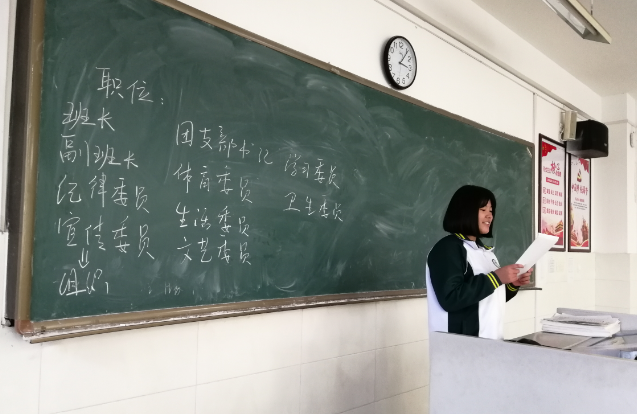 职位：
班长
副班长
纪律委员
宣传委员
组织
团支部书记
体育委员
生活委员
文艺委员
学习委员
卫生委员